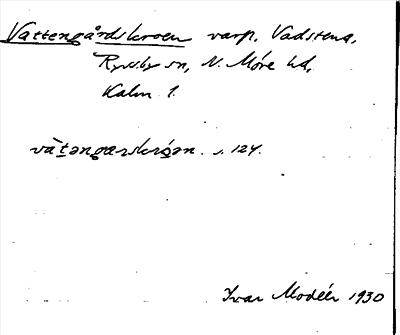 Vattengårdskroen varp. Vadstena,
Ryssby sn, N. Möre hd,
Kalm. l.
vàtəngarskróən. s. 124.
Ivar Modéer 1930